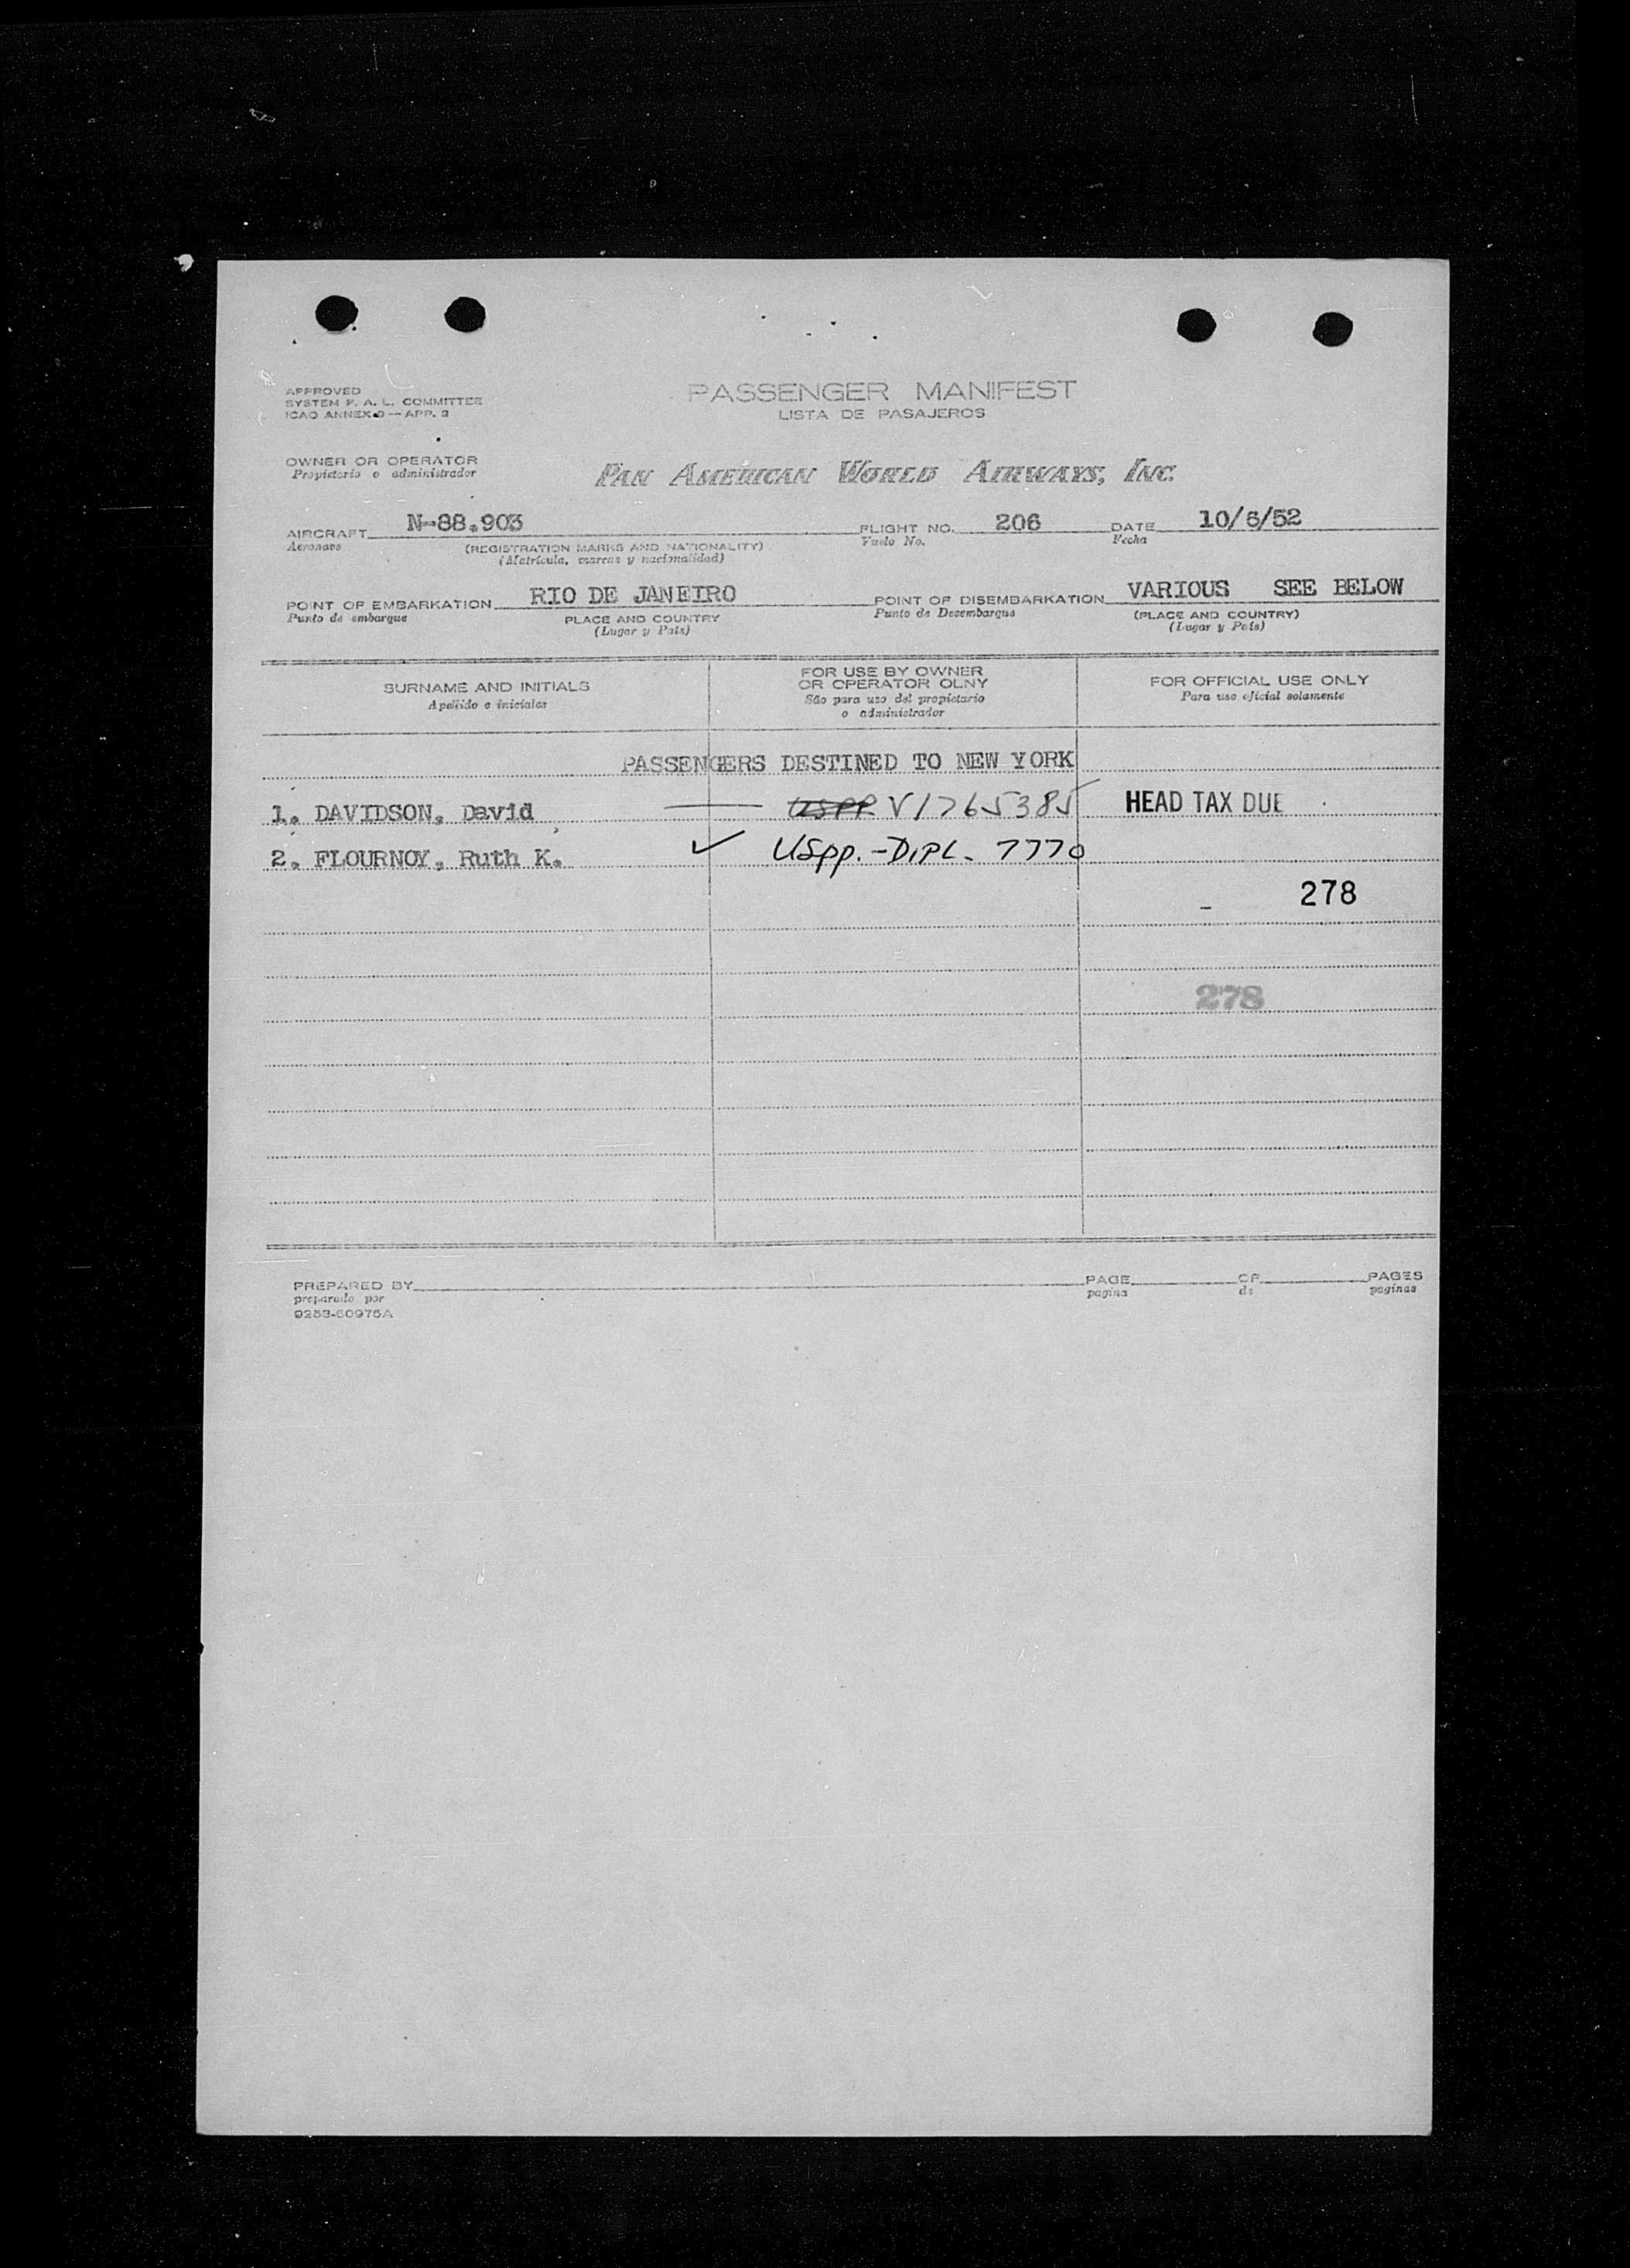 APPROVED
SYSTEM F. A. L. COMMITTEE
ICAO ANNEX 9 — APP. 3
PASSENGER MANIFEST
LISTA DE PASAJEROS
OWNER OR OPERATOR
Propietario o administrador
PAN AMERICAN WORLD AIRWAYS, INC.
AIRCRAFT N-88.903 FLIGHT NO. 206 DATE 10/6/52
Aeronave (REGISTRATION MARKS AND NATIONALITY) Vuelo No. Fecha
(Matrícula, marcas y nacionalidad)
POINT OF EMBARKATION RIO DE JANEIRO POINT OF DISEMBARKATION VARIOUS SEE BELOW
Punto de embarque PLACE AND COUNTRY Punto de Desembarque (PLACE AND COUNTRY)
(Lugar y País) (Lugar y País)
SURNAME AND INITIALS
Apellido e iniciales
FOR USE BY OWNER
OR OPERATOR OLNY
São para uso del propietario
o administrador
FOR OFFICIAL USE ONLY
Para uso oficial solamente
PASSENGERS DESTINED TO NEW YORK
1. DAVIDSON, David — USPP V1765385 HEAD TAX DUE
2. FLOURNOY, Ruth K. ✓ USpp.-DIPL. 7770
278
278
PREPARED BY PAGE OF PAGES
preparado por pagina de paginas
9253-60975A